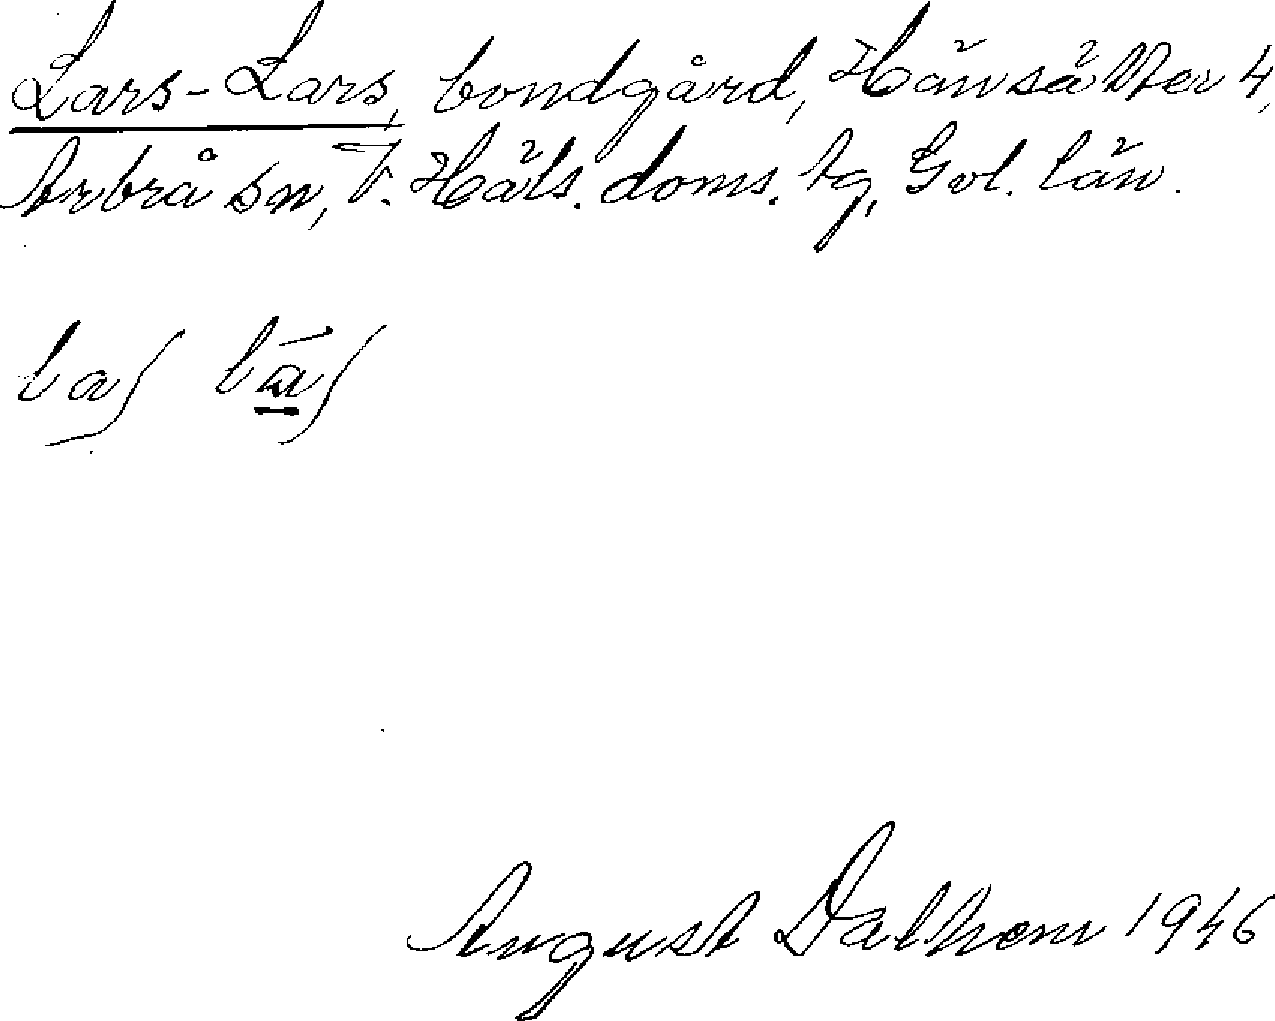 Lars-Lars, bondgård, Hänsätter 4,
Arbrå sn, V. Häls. doms. tg, Gvl. län.
laſ lāſ
August Dalhem 1946